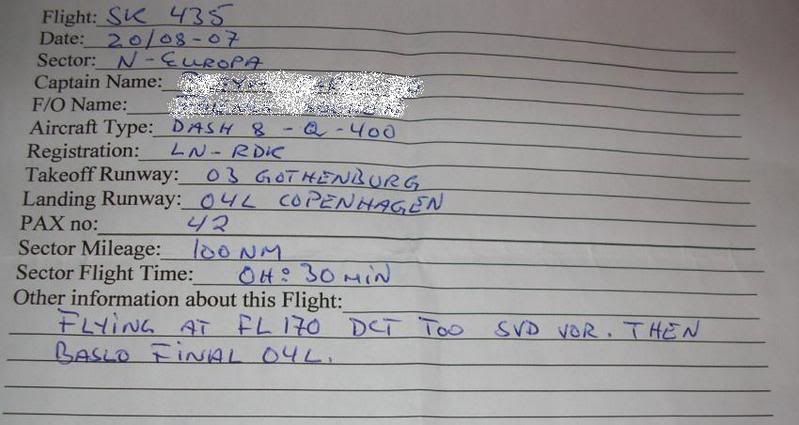 Flight: SK 435
Date: 20/08-07
Sector: N-EUROPA
Captain Name:
F/O Name:
Aircraft Type: DASH 8 - Q - 400
Registration: LN-RDK
Takeoff Runway: 03 GOTHENBURG
Landing Runway: 04L COPENHAGEN
PAX no: 42
Sector Mileage: 100NM
Sector Flight Time: 0H: 30 MIN
Other information about this Flight:
FLYING AT FL 170 DCT TOO SVD VOR. THEN
BASLO FINAL 04L.